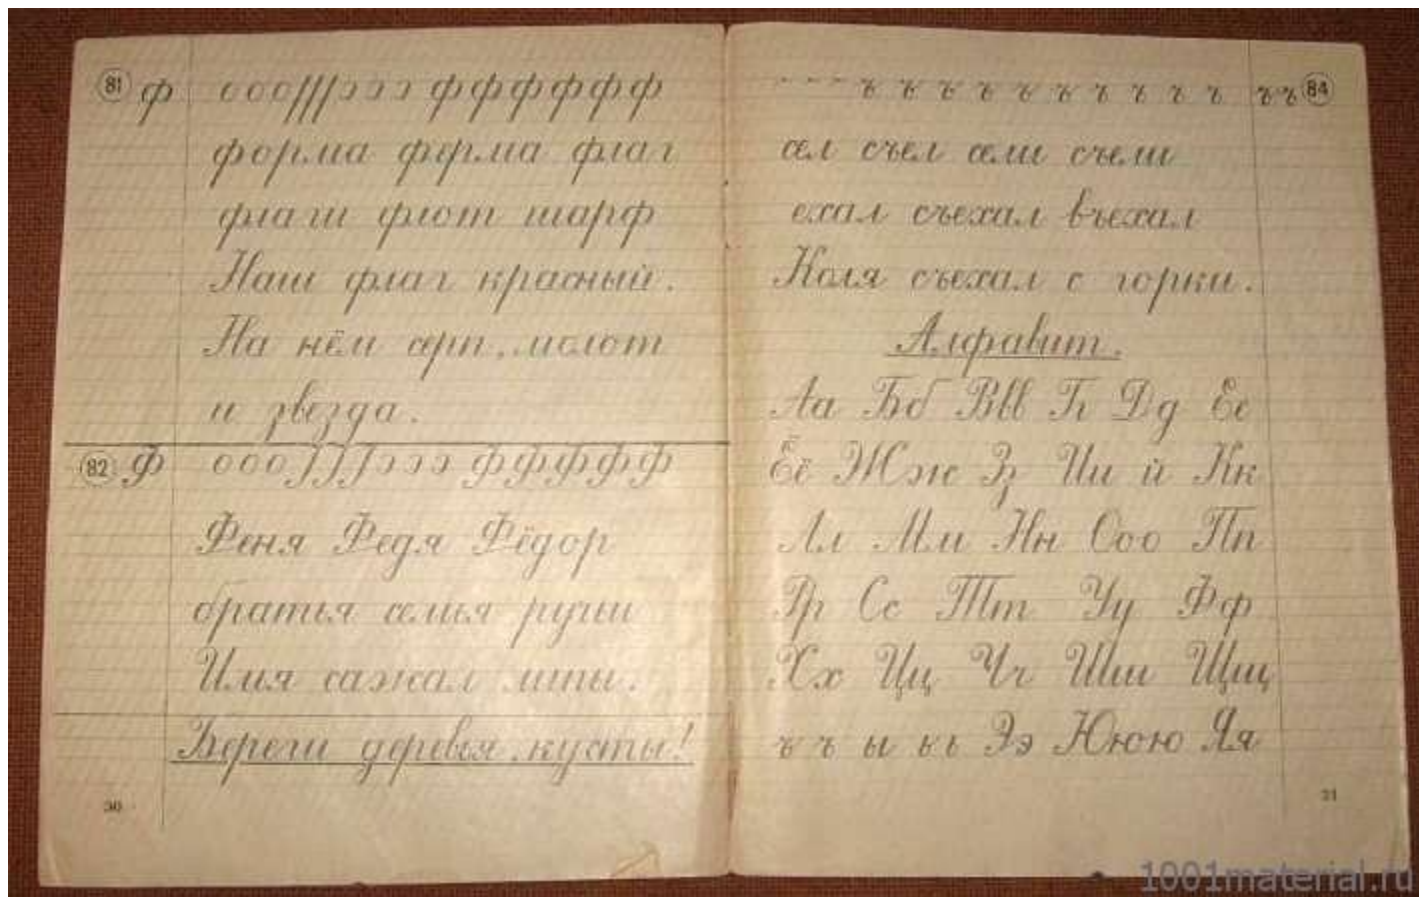 81 ф ооо ||| ɔɔɔ ф ф ф ф ф ф
форма ферма флаг
флаги флот шарф
Наш флаг красный.
На нём серп, молот
и звезда.
82 Ф ооо ɔɔɔ Ф Ф Ф Ф Ф
Феня Федя Фёдор
братья семья ручьи
Илья сажал липы.
Береги деревья, кусты!
30
ъ ъ ъ ъ ъ ъ ъ ъ ъ ъ ъъ 84
сел съел сели съели
ехал съехал въехал
Коля съехал с горки.
Алфавит.
Аа Бб Ввв Гг Дд Ее
Ёё Жж Зз Ии й Кк
Лл Мм Нн Ооо Пп
Рр Сс Ттт Уу Фф
Хх Цц Чч Шш Щщ
ъ ъ ы ь ь Ээ Ююю Яя
31
1001material.ru